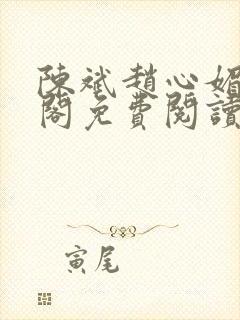 陳斌趙心媚
閣免費閱讀
寅尾